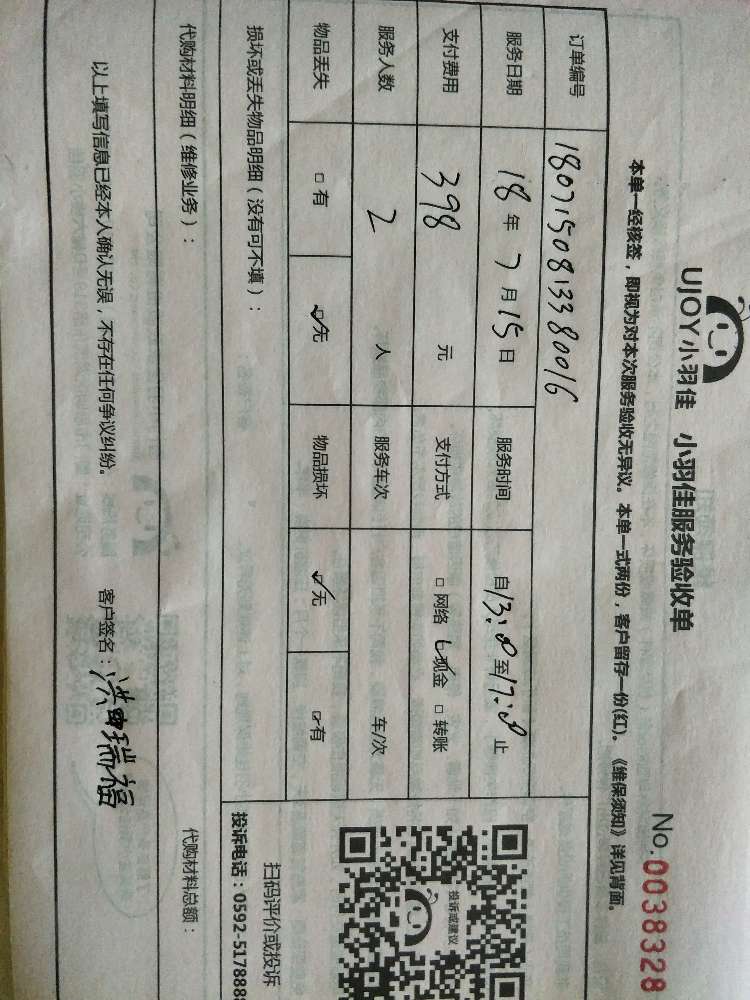 UJOY小羽佳 小羽佳服务验收单
No.0038328
本单一经核签，即视为对本次服务验收无异议。本单一式两份，客户留存一份(红)。《维保须知》详见背面。
订单编号 1807150813380016
服务日期 18年7月15日 服务时间 自13:00至17:00止
支付费用 398 元 支付方式 □网络 ☑现金 □转账
服务人数 2 人 服务车次 车/次
物品丢失 □有 ☑无 物品损坏 ☑无 □有
损坏或丢失物品明细（没有可不填）：
投诉或建议
扫码评价或投诉
投诉电话：0592-5178888
代购材料明细（维修业务）： 代购材料总额：
以上填写信息已经本人确认无误，不存在任何争议纠纷。 客户签名：